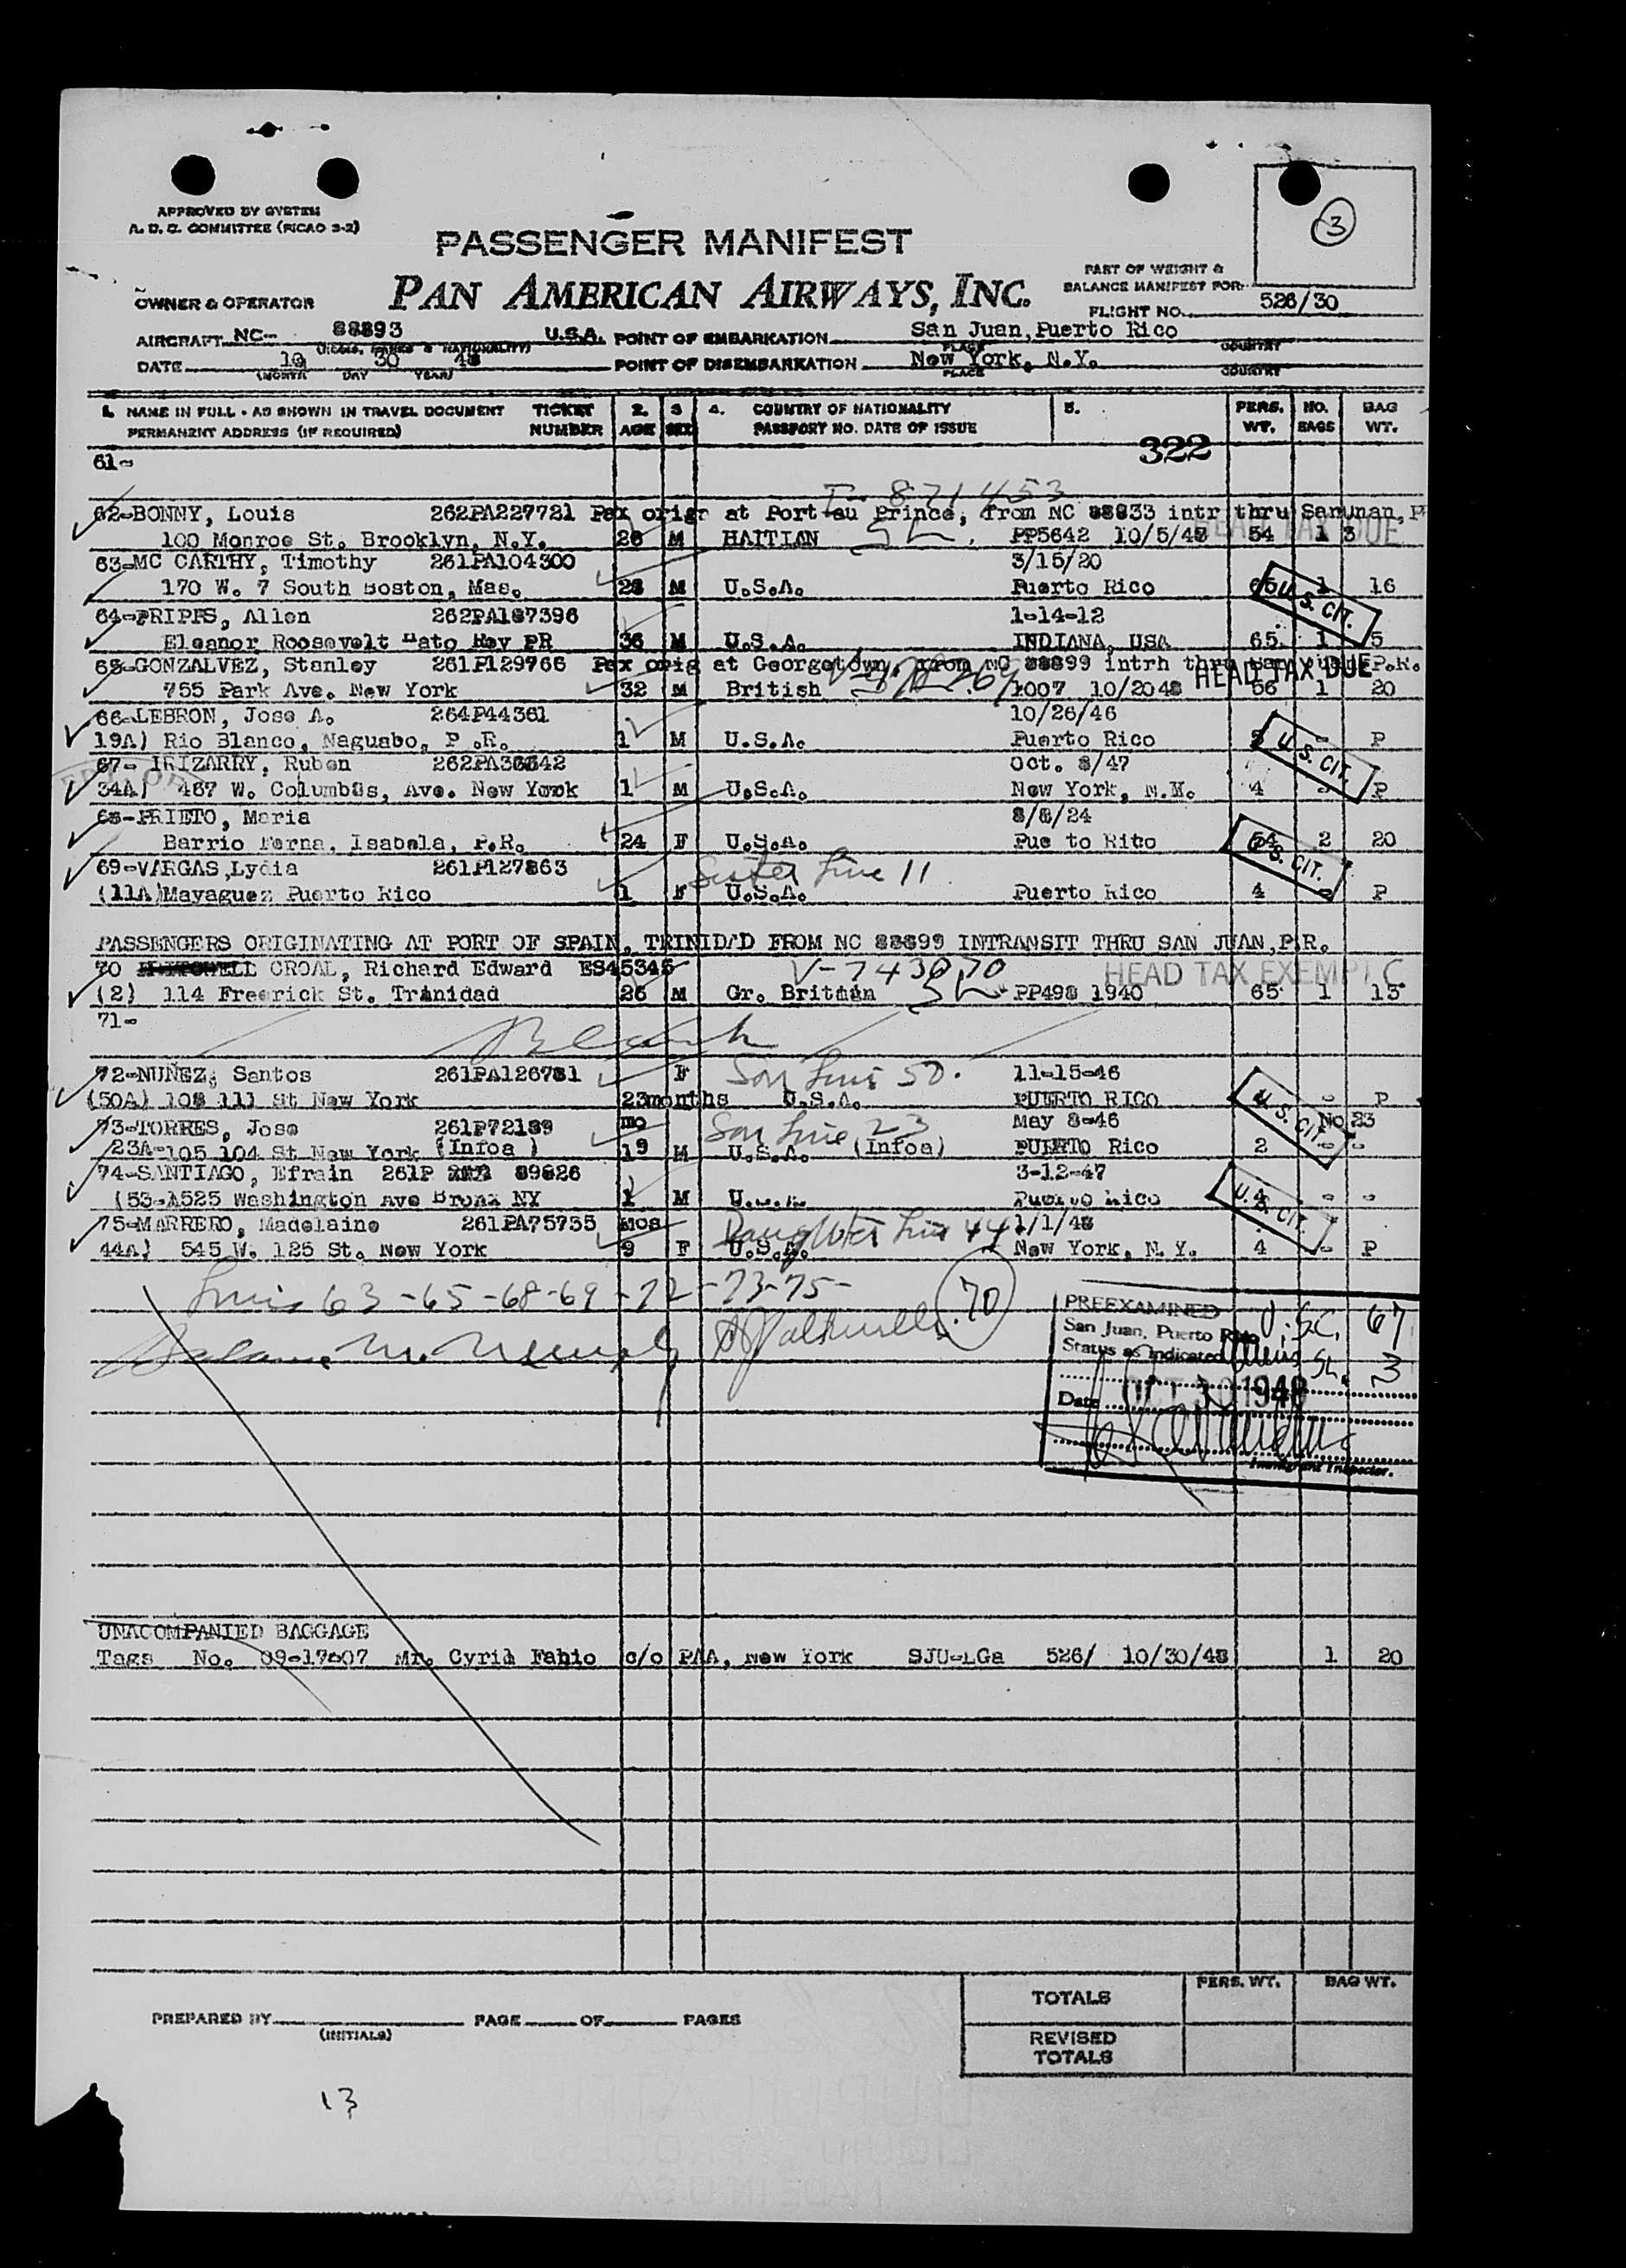 APPROVED BY SYSTEM
A. D. C. COMMITTEE (PICAO 3-2)
3
PASSENGER MANIFEST
PAN AMERICAN AIRWAYS, INC.
OWNER & OPERATOR
PART OF WEIGHT &
BALANCE MANIFEST FOR:
FLIGHT NO. 526/30
AIRCRAFT NC- 88893 U.S.A. POINT OF EMBARKATION San Juan, Puerto Rico
PLACE COUNTRY
DATE 10 30 48 POINT OF DISEMBARKATION New York, N.Y.
(MONTH DAY YEAR) PLACE COUNTRY
1. NAME IN FULL - AS SHOWN IN TRAVEL DOCUMENT TICKET 2. 3 4. COUNTRY OF NATIONALITY 5. PERS. NO. BAG
PERMANENT ADDRESS (IF REQUIRED) NUMBER AGE SEX PASSPORT NO. DATE OF ISSUE WT. BAGS WT.
322
61-
871453
62-BONNY, Louis 262PA227721 Pax orig at Port au Prince, from NC 88833 intr thru
100 Monroe St. Brooklyn, N.Y. 26 M HAITIAN PP5642 10/5/48 54 1 3
HEAD TAX DUE
63-MC CARTHY, Timothy 261PA104300 3/15/20
170 W. 7 South Boston, Mas. 28 M U.S.A. Puerto Rico 65 1 16
U.S. CIT.
64-PRIPPS, Allen 262PA187396 1-14-12
Eleanor Roosevelt Hato Rey PR 36 M U.S.A. INDIANA, USA 65 1 5
65-GONZALVEZ, Stanley 261P129766 Pax orig at Georgetown, from NC 88899 intrh thru San Juan P.R.
HEAD TAX DUE
755 Park Ave. New York 32 M British 1007 10/2048 56 1 20
66-LEBRON, Jose A. 264P44361 10/26/46
19A) Rio Blanco, Naguabo, P.R. 1 M U.S.A. Puerto Rico - P
U.S. CIT.
67- IRIZARRY, Ruben Oct. 8/47
34A) 467 W. Columbus, Ave. New York 1 M U.S.A. New York, N.Y. 4 - P
68-PRIETO, Maria 8/8/24
Barrio Terna, Isabela, P.R. 24 F U.S.A. Pue to Rito 54 2 20
U.S. CIT.
69-VARGAS, Lydia 261P127863 Sister Line 11
(11A)Mayaguez Puerto Rico 1 F U.S.A. Puerto Rico 4 - P
PASSENGERS ORIGINATING AT PORT OF SPAIN, TRINIDAD FROM NC 88899 INTRANSIT THRU SAN JUAN, P.R.
70 CROAL, Richard Edward ES45345 V-743070 HEAD TAX EXEMPT
(2) 114 Freerick St. Tranidad 26 M Gr. Britain PP498 1940 65 1 13
71-
Blank
72-NUÑEZ, Santos 261PA126781 F Son Line 50. 11-15-46
(50A) 108 111 St New York 23months U.S.A. PUERTO RICO 4 - P
U.S. CIT.
73-TORRES, Jose 261P72189 mo Son Line 23 May 8-46 No 23
23A-105 104 St New York (Infoa) 19 M U.S.A. (Infoa) PUERTO Rico 2 - -
74-SANTIAGO, Efrain 261P 89626 3-12-47
(53-A525 Washington Ave Bronx NY 1 M Puerto Rico 4 - -
U.S. CIT.
75-MARRERO, Madelaine 261PA75735 Mos Daughter Line 44 1/1/48
44A) 545 W. 125 St. New York 9 F U.S.A. New York, N.Y. 4 - P
Lines 63-65-68-69-72-73-75- 70
PREEXAMINED U.S.C. 67
San Juan, Puerto Rico
Status as indicated Aliens 3
Date OCT 30 1948
Immigrant Inspector.
UNACOMPANIED BAGGAGE
Tags No. 09-17607 Mr. Cyril Fabio c/o PAA, New York SJU-LGa 526/ 10/30/48 1 20
PERS. WT. BAG WT.
TOTALS
PREPARED BY PAGE OF PAGES
(INITIALS)
REVISED
TOTALS
13